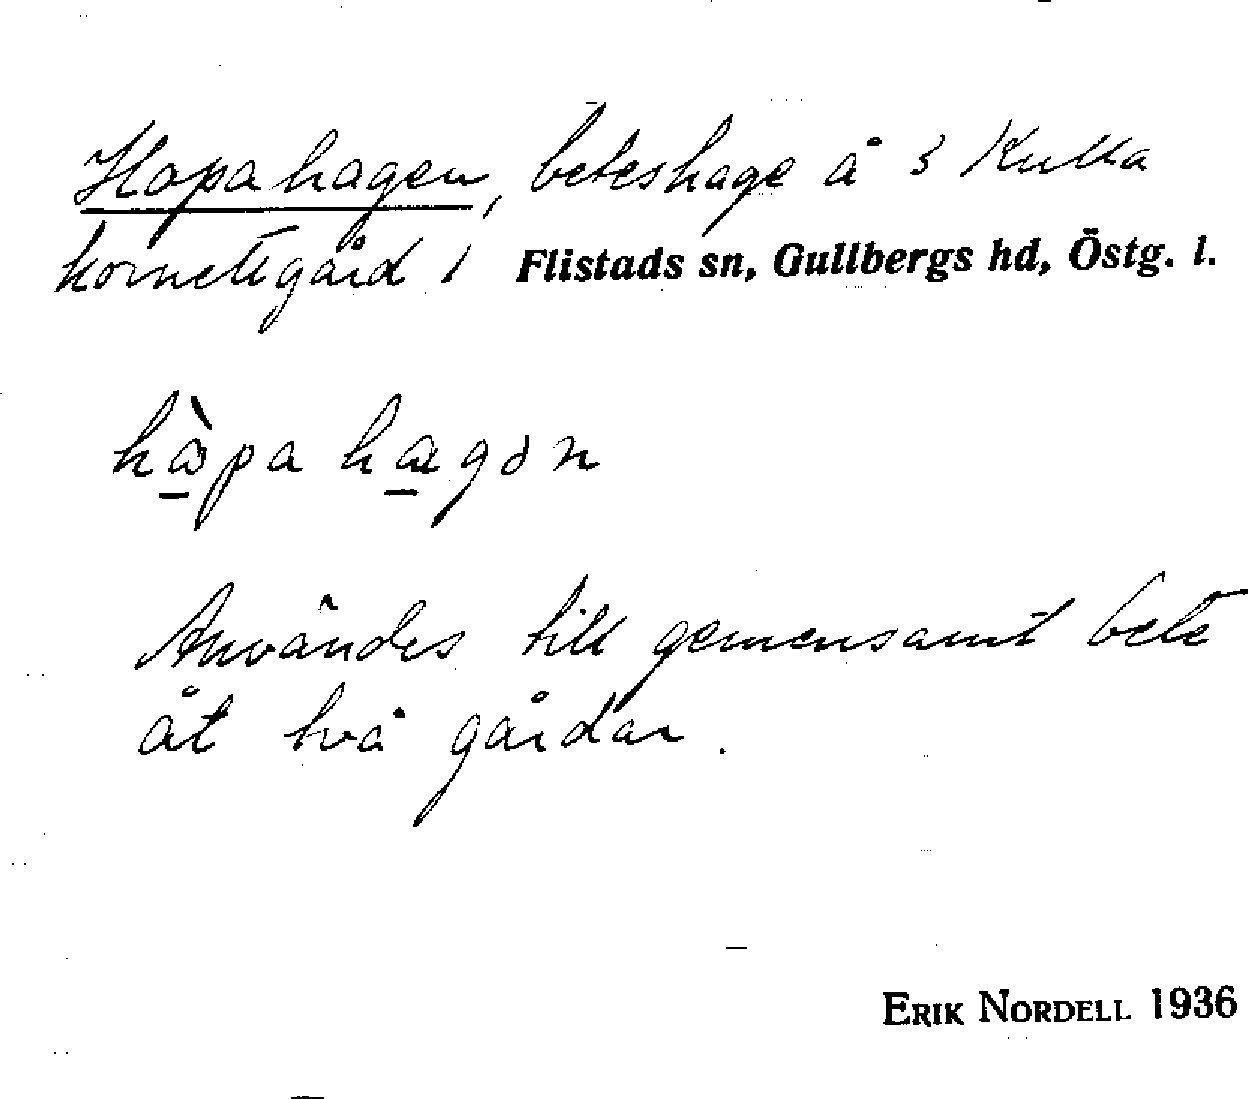 Hopahagen, beteshage å 3 Kulla
kornettgård i Flistads sn, Gullbergs hd, Östg. l.
hàpa hagən
Användes till gemensamt bete
åt två gårdar.
ERIK NORDELL 1936